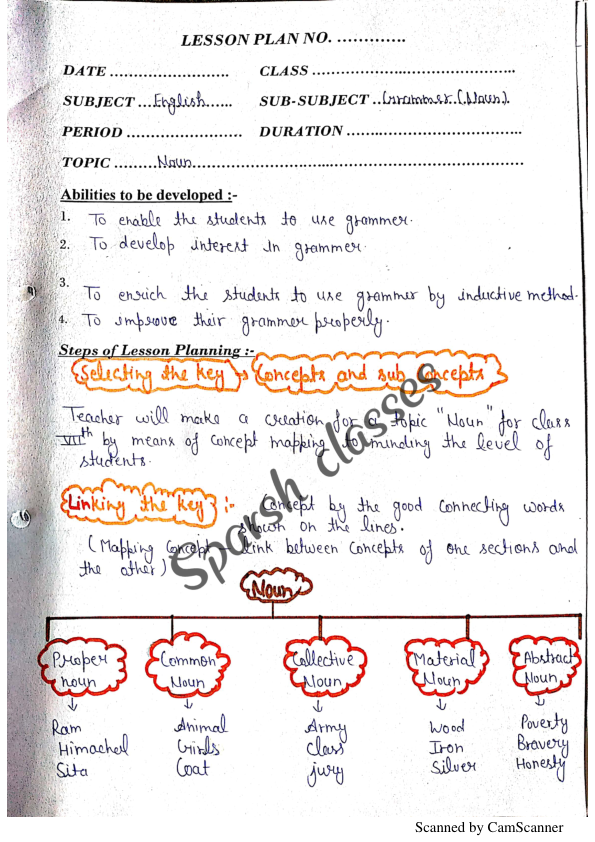 LESSON PLAN NO. .............
DATE ......................... CLASS ..........................................
SUBJECT ...English...... SUB-SUBJECT ..Grammer.(Noun).
PERIOD ........................ DURATION ...............................
TOPIC .........Noun....................................................................
Abilities to be developed :-
1. To enable the students to use grammer.
2. To develop interest in grammer.
3. To enrich the students to use grammer by inductive method.
4. To improve their grammer properly.
Steps of Lesson Planning :-
Selecting the key Concepts and sub concepts
Teacher will make a creation for a topic "Noun" for class
VIIth by means of concept mapping to minding the level of
students.
Linking the key :- Concept by the good connecting words
shown on the lines.
(Mapping Concept — Link between concepts of one sections and
the other)
Sparsh classes
Noun
Proper noun Common Noun Collective Noun Material Noun Abstract Noun
Ram Animal Army Wood Poverty
Himachel Girls Class Iron Bravery
Sita Coat jury Silver Honesty
Scanned by CamScanner